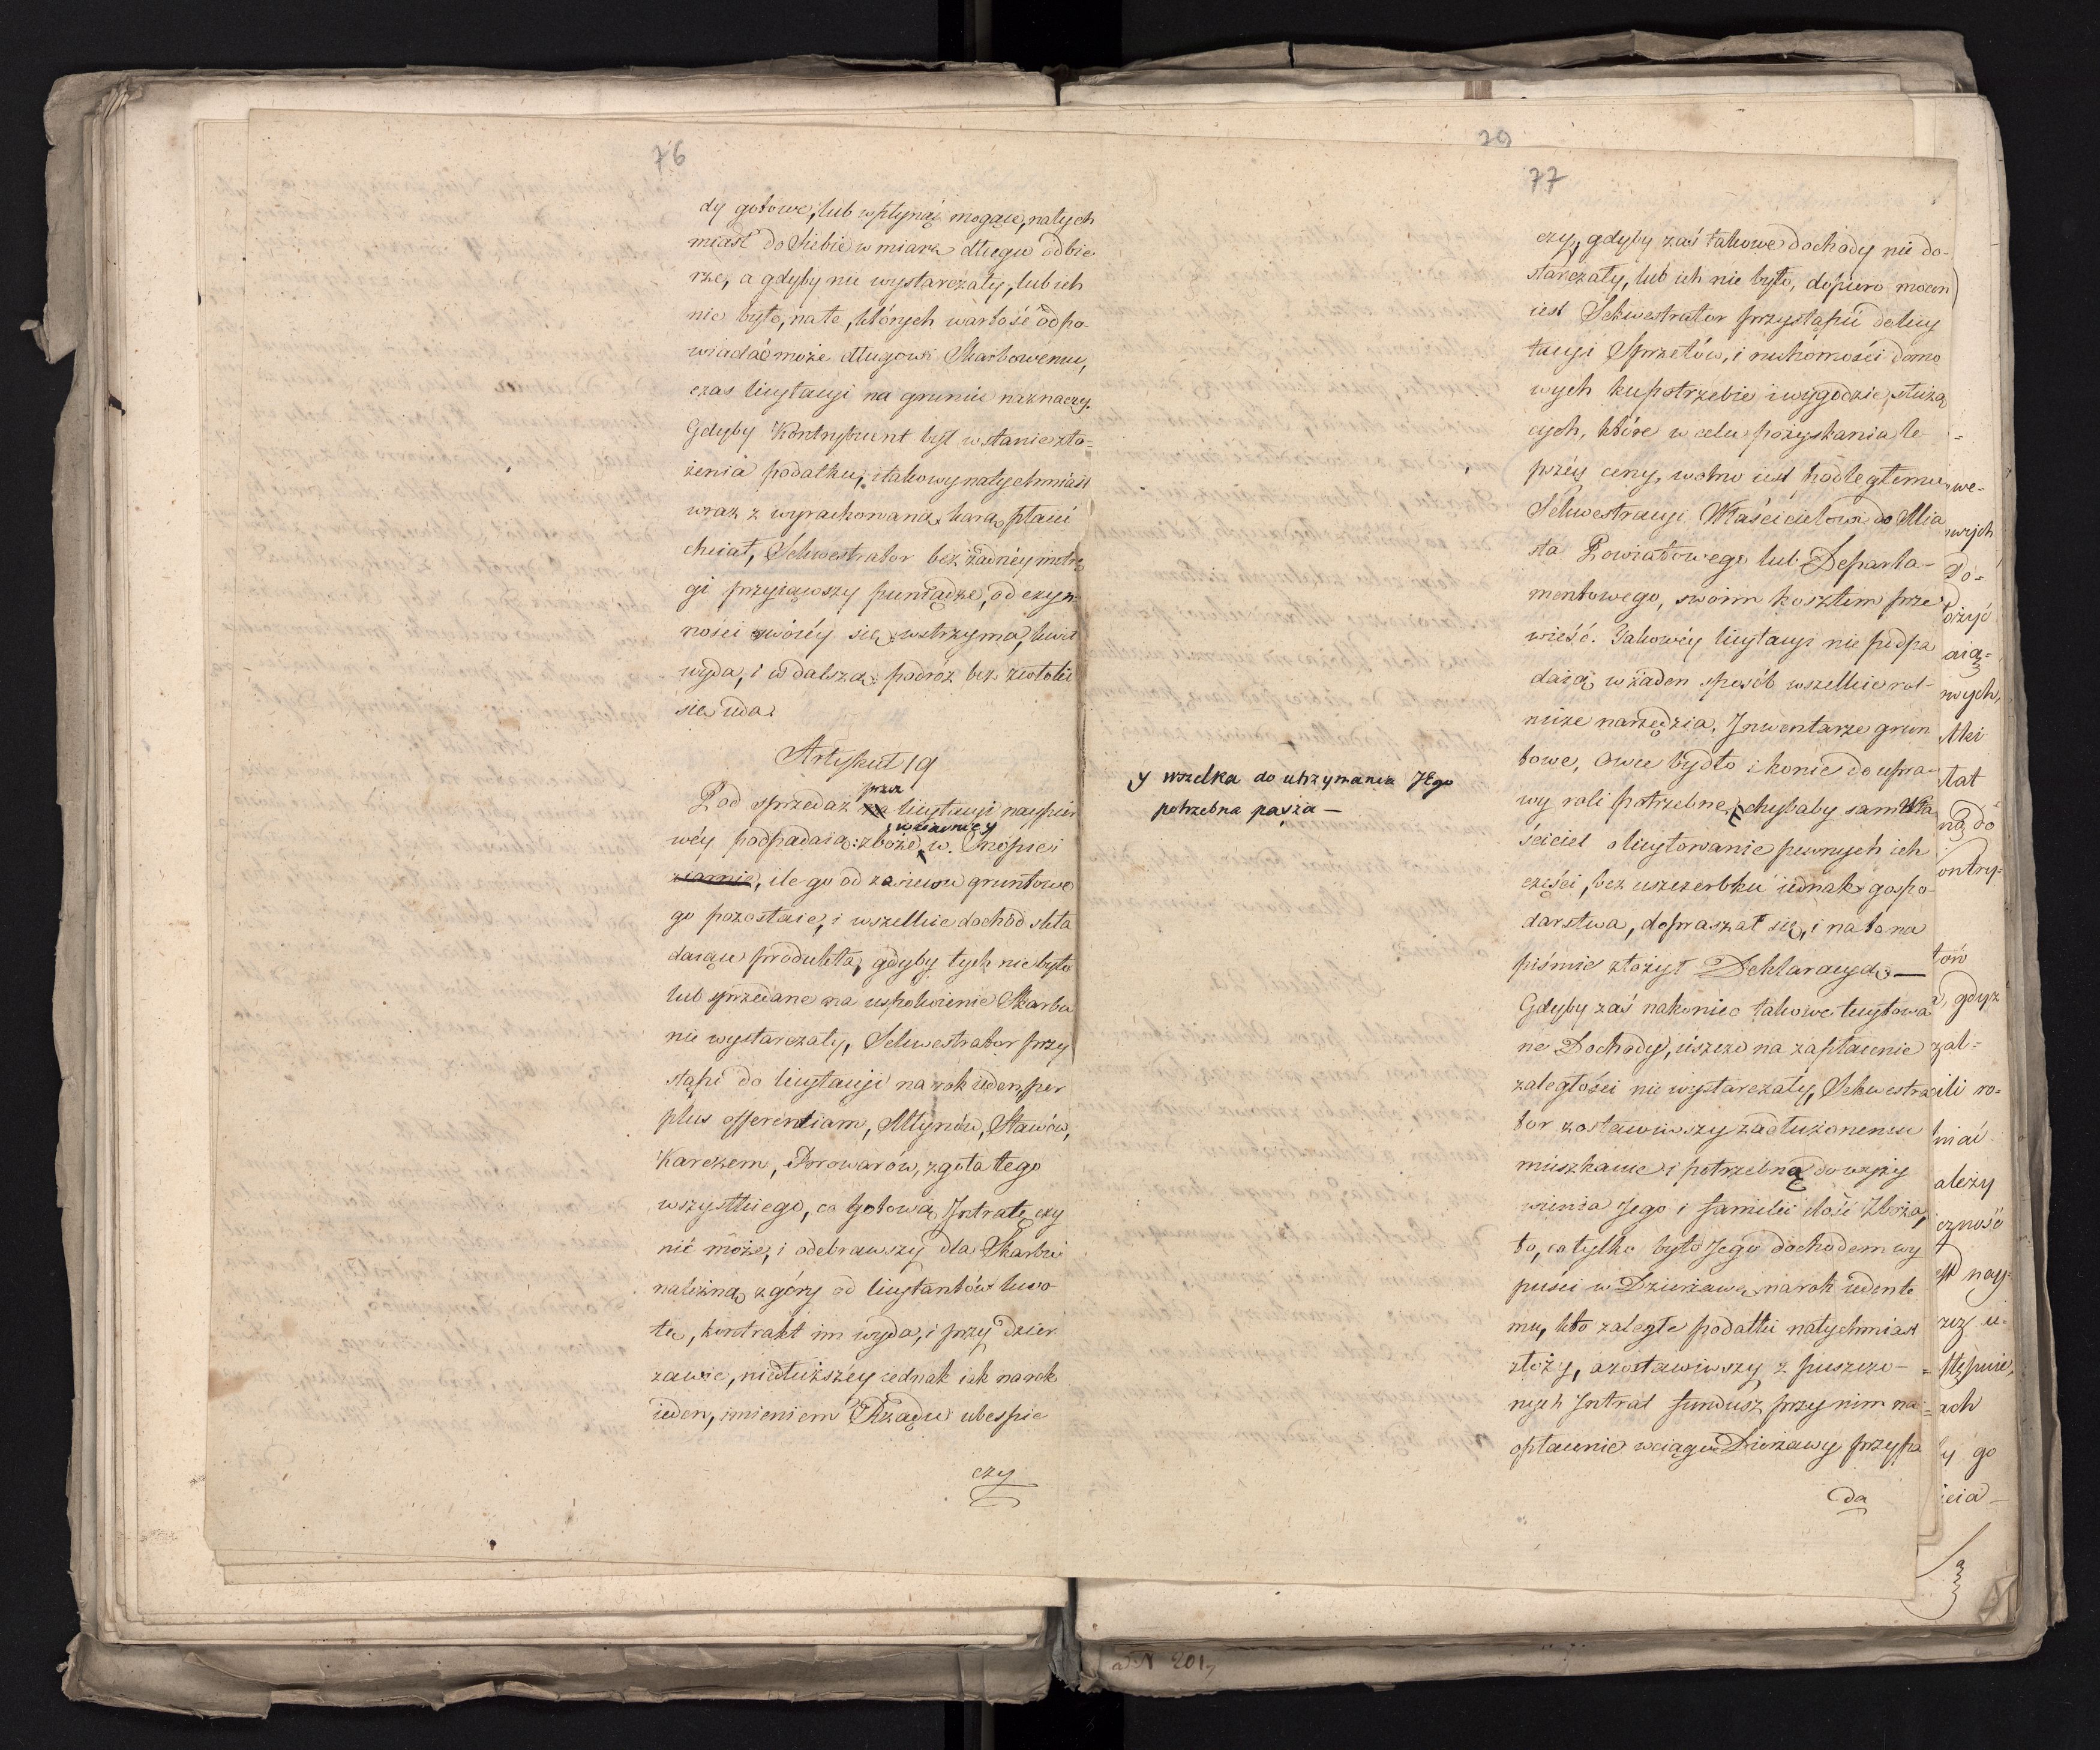 76
dy gotowe, lub wpłynąć mogące, natych
miast do siebie w miarę długu odbie
rze, a gdyby nie wystarczały, lub ich
nie było, na te, których wartość odpo-
wiadać może długowi Skarbowemu,
czas licytacyi na gruncie naznaczy.
Gdyby Kontrybuent był w stanie zło-
żenia podatku, i takowy natychmiast
wraz z wyrachowaną karą płacić
chciał, Sekwestrator bez żadnéy intry
gi przyiąwszy pieniądze, od czyn-
ności swoiéy się wstrzyma, kwit
wyda, i w dalszą podróż bez zwłoki
się uda.
Artykuł 19
Pod sprzedaż przez licytacyi naypier
wéy podpadaią: zboże w ziarnie y w snopie i
ziarnie, ile go od zasiewu gruntowe
go pozostaie, i wszelkie dochód skła
daiące produkta, gdyby tych nie było
lub sprzedane na uspokoienie Skarbu
nie wystarczały, Sekwestrator przy
stąpi do licytacyi na rok ieden, per
plus offerentiam, Młynów, Stawów,
Karczem, Browarów, zgoła tego
wszystkiego, co gotową Intratę czy
nić może, i odebrawszy dla Skarbu
należną z góry od licytantów kwo
tę, kontrakt im wyda, i przy dzier
zawie, niedłuższéy iednak iak na rok
ieden, imieniem Rządu ubespie
czy
29
77
czy, gdyby zaś takowe dochody nie do-
starczały, lub ich nie było, dopiero mocen
iest Sekwestrator przystąpić do licy
tacyi Sprzetów, i ruchomości domo
wych ku potrzebie i wygodzie służą
cych, które w celu pozyskania le-
przéy ceny, wolno iest podległemu
Sekwestracyi Właścicielowi do Mia
sta Powiatowego lub Departa-
mentowego, swoim kosztem prze
wieść. Takowéy licytacyi nie podpa
daią w żaden sposób wszelkie rol-
nicze narzędzia, Inwentarze grun
towe, Owce bydło i konie do upra-
wy roli potrzebne, chybaby sam Wła
ściciel o licytowanie pewnych ich
części, bez uszczerbku iednak gospo-
darstwa, dopraszał się, i na to na
piśmie złożył Deklaracyą —
Gdyby zaś nakoniec takowe licytowa
ne Dochody, ieszcze na zapłacenie
zaległości nie wystarczały, Sekwestra
tor zostawiwszy zadłużonemu
mieszkanie i potrzebną do wyży
wienia Jego i familii ilość Zboża,
to, co tylko było Jego dochodem wy
puści w Dzierżawę, na rok ieden te
mu, kto zaległe podatki natychmiast
złoży, a zostawiwszy z puszczo-
nych Intrat fundusz przy nim na
opłacenie wciągu Dzierżawy przypa
da
y wszelka do utrzymania JEgo
potrzebna pasza —
we-
wych
Do-
ożyć
aią-
nych,
Mei
tat
ną do
ontry-
tów
gdyz
zal-
ili ro-
ależy
iczność
est nay-
zez u-
stępnie,
ach
y go
icia —
a N 201,